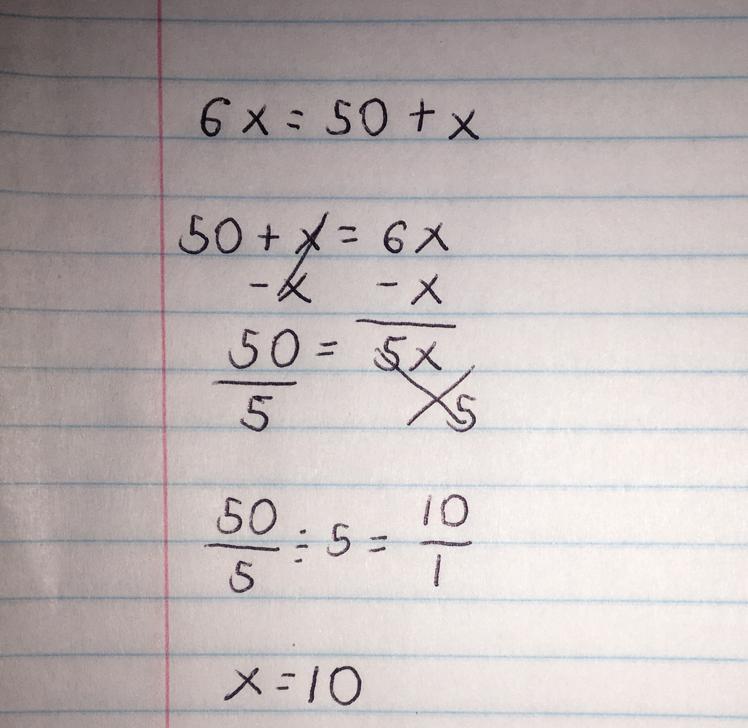 6x = 50 + x
50 + x = 6x
- x - x
50 = 5x
5 5
50/5 ÷ 5 = 10/1
x = 10